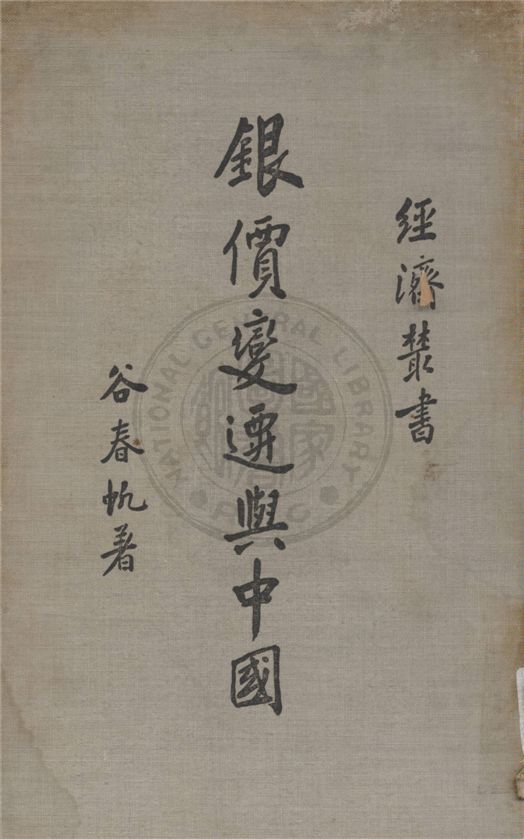 經濟叢書
銀價變遷與中國
谷春帆著
NATIONAL CENTRAL LIBRARY